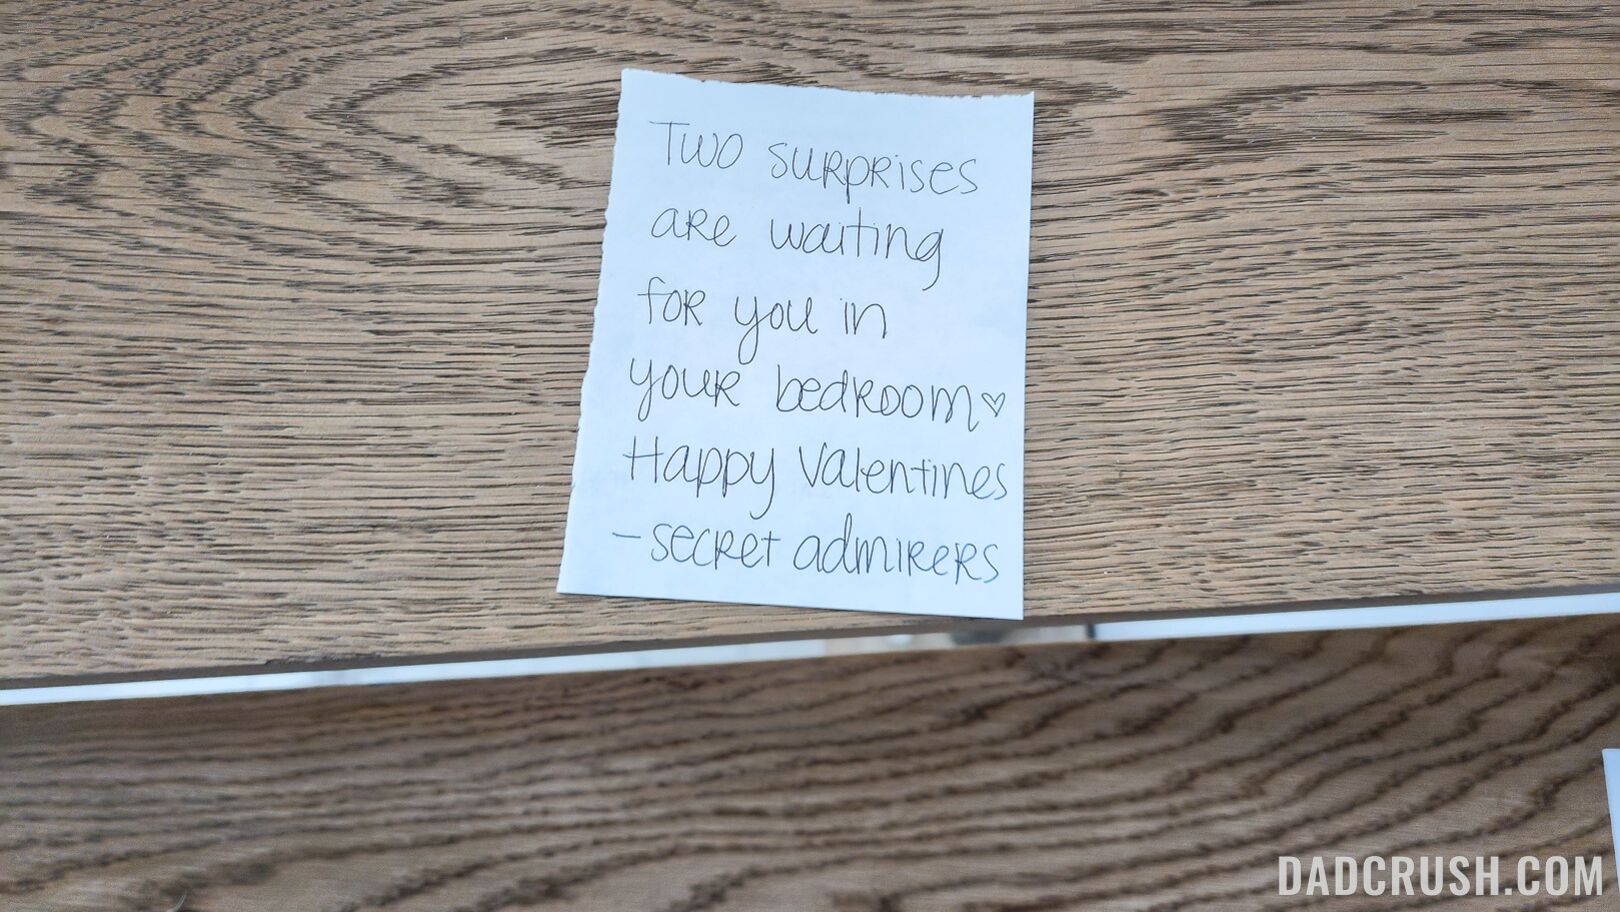 Two surprises
are waiting
for you in
your bedroom♡
Happy Valentines
- secret admirers
DADCRUSH.COM